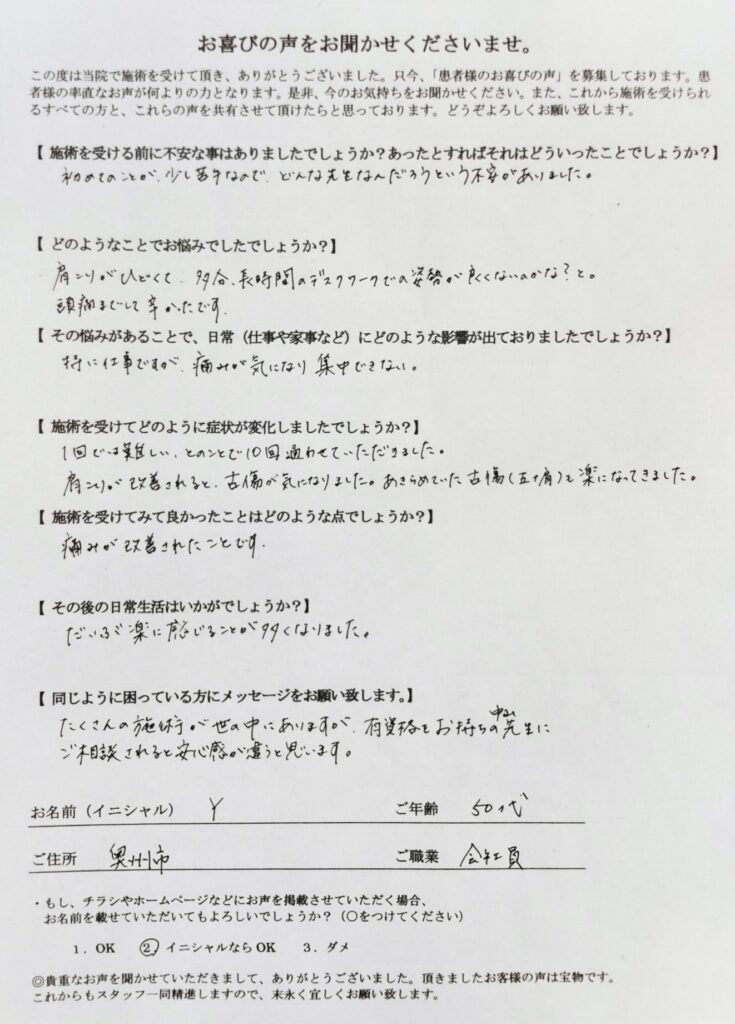 お喜びの声をお聞かせくださいませ。
この度は当院で施術を受けて頂き、ありがとうございました。只今、「患者様のお喜びの声」を募集しております。患
者様の率直なお声が何よりの力となります。是非、今のお気持ちをお聞かせください。また、これから施術を受けられ
るすべての方と、これらの声を共有させて頂けたらと思っております。どうぞよろしくお願い致します。
【 施術を受ける前に不安な事はありましたでしょうか？あったとすればそれはどういったことでしょうか？】
初めてのことが、少し苦手なので、どんな先生なんだろうという不安がありました。
【 どのようなことでお悩みでしたでしょうか？】
肩こりがひどくて、多分、長時間のデスクワークでの姿勢が良くないのかな？と。
頭痛までして辛かったです。
【 その悩みがあることで、日常（仕事や家事など）にどのような影響が出ておりましたでしょうか？】
特に仕事ですが、痛みが気になり集中できない。
【 施術を受けてどのように症状が変化しましたでしょうか？】
1回では難しい、とのことで10回通わせていただきました。
肩こりが改善されると、古傷が気になりました。あきらめていた古傷（五十肩）も楽になってきました。
【 施術を受けてみて良かったことはどのような点でしょうか？】
痛みが改善されたことです。
【 その後の日常生活はいかがでしょうか？】
だいぶ楽に感じることが多くなりました。
【 同じように困っている方にメッセージをお願い致します。】
たくさんの施術が世の中にありますが、有資格をお持ちの先生に
ご相談されると安心感が違うと思います。
お名前（イニシャル） Y ご年齢 50代
ご住所 奥州市 ご職業 会社員
・もし、チラシやホームページなどにお声を掲載させていただく場合、
お名前を載せていただいてもよろしいでしょうか？（○をつけてください）
1．OK ②イニシャルならOK 3．ダメ
◎貴重なお声を聞かせていただきまして、ありがとうございました。頂きましたお客様の声は宝物です。
これからもスタッフ一同精進しますので、末永く宜しくお願い致します。